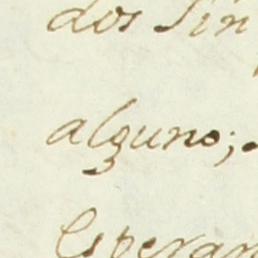 dos sin
alguno;
Esperan